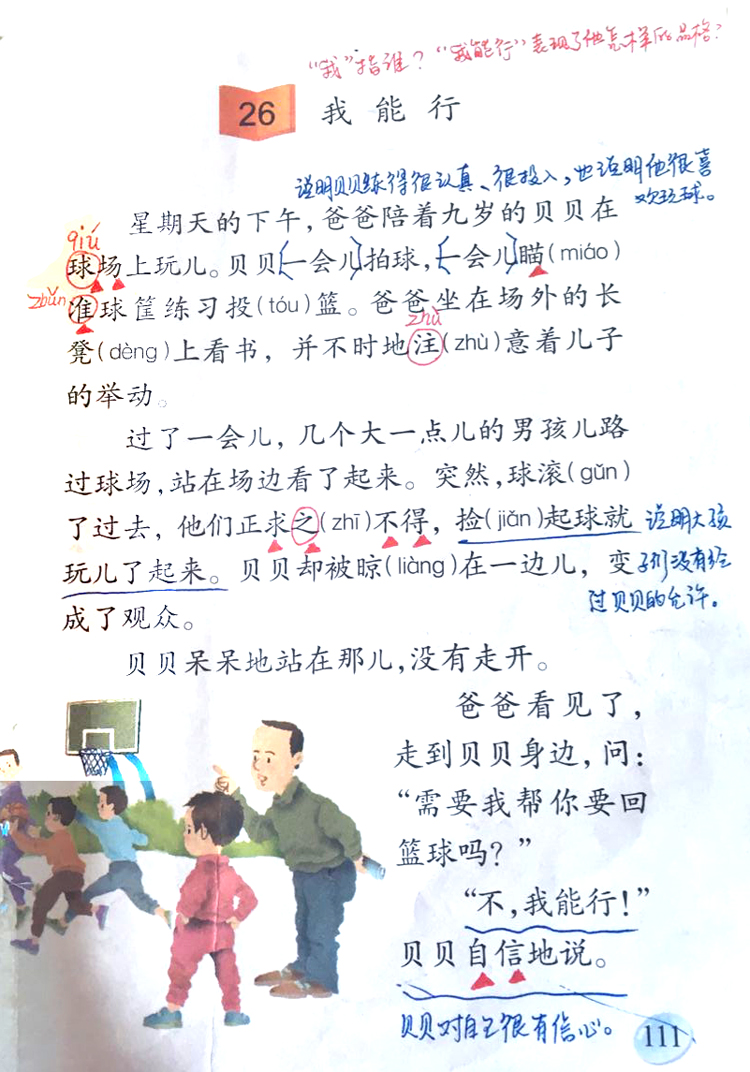 “我”指谁？“我能行”表现了他怎样的品格？
26 我能行
说明贝贝练得很认真、很投入，也说明他很喜
欢玩球。
星期天的下午，爸爸陪着九岁的贝贝在
qiú
球场上玩儿。贝贝一会儿拍球，一会儿瞄(miáo)
zhǔn
准球筐练习投(tóu)篮。爸爸坐在场外的长
zhù
凳(dèng)上看书，并不时地注(zhù)意着儿子
的举动。
过了一会儿，几个大一点儿的男孩儿路
过球场，站在场边看了起来。突然，球滚(gǔn)
了过去，他们正求之(zhī)不得，捡(jiǎn)起球就
说明大孩
玩儿了起来。贝贝却被晾(liàng)在一边儿，变
子们没有经
过贝贝的允许。
成了观众。
贝贝呆呆地站在那儿，没有走开。
爸爸看见了，
走到贝贝身边，问：
“需要我帮你要回
篮球吗？”
“不，我能行！”
贝贝自信地说。
贝贝对自己很有信心。
111